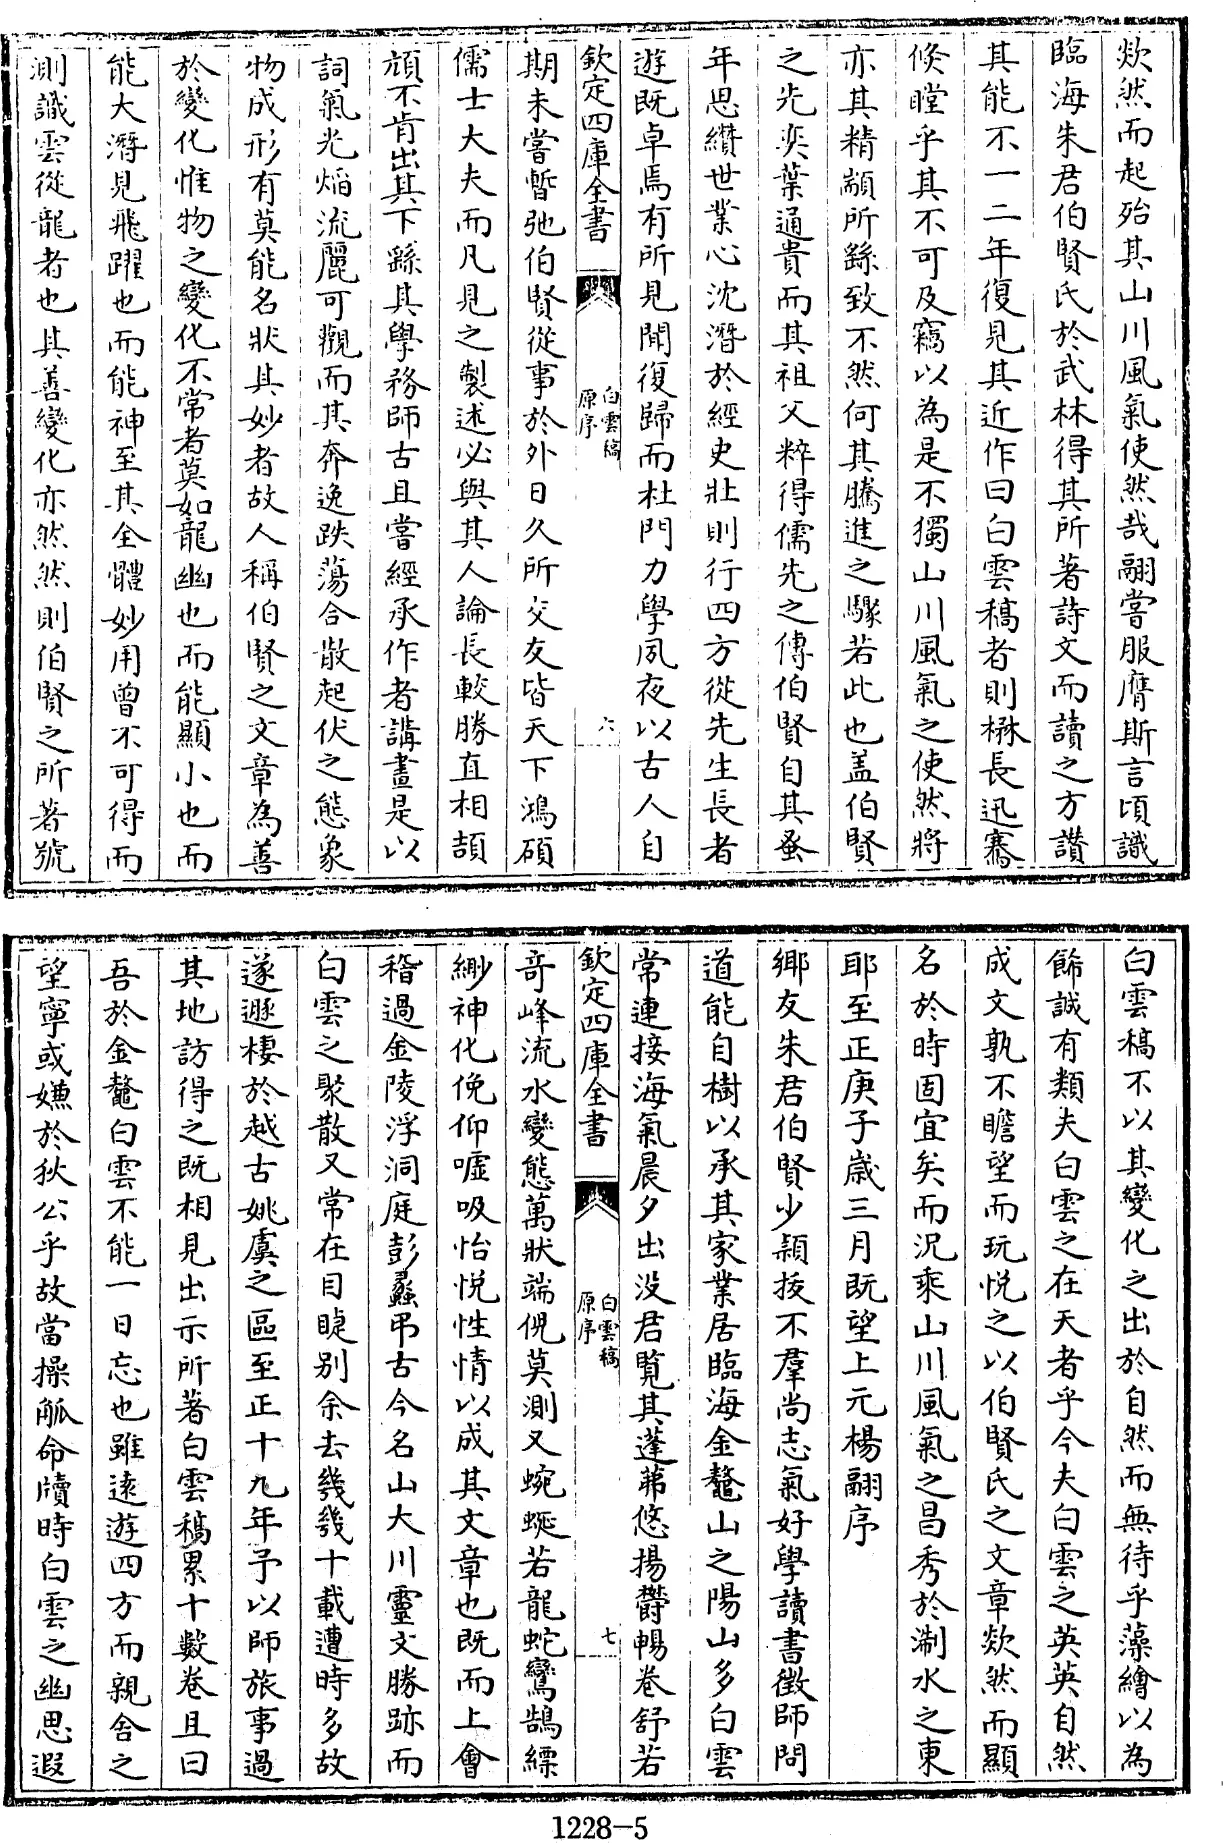 欻然而起殆其山川風氣使然哉翮嘗服膺斯言頃識
臨海朱君伯賢氏於武林得其所著詩文而讀之方讃
其能不一二年復見其近作曰白雲稿者則楙長迅騫
倐瞠乎其不可及竊以為是不獨山川風氣之使然將
亦其精顓所繇致不然何其騰進之驟若此也盖伯賢
之先奕葉通貴而其祖父粹得儒先之傳伯賢自其蚤
年思纘世業心沈潛於經史壯則行四方從先生長者
遊既卓焉有所見聞復歸而杜門力學夙夜以古人自
欽定四庫全書
白雲稿
原序
六
期未嘗暫弛伯賢從事於外日久所交友皆天下鴻碩
儒士大夫而凡見之製述必與其人論長較勝直相頡
頏不肯出其下繇其學務師古且嘗經承作者講畫是以
詞氣光焰流麗可觀而其奔逸跌蕩合散起伏之態象
物成形有莫能名狀其妙者故人稱伯賢之文章為善
於變化惟物之變化不常者莫如龍幽也而能顯小也而
能大潛見飛躍也而能神至其全體妙用曾不可得而
測識雲從龍者也其善變化亦然然則伯賢之所著號
白雲稿不以其變化之出於自然而無待乎藻繪以為
飾誠有類夫白雲之在天者乎今夫白雲之英英自然
成文孰不瞻望而玩悦之以伯賢氏之文章欻然而顯
名於時固宜矣而況乘山川風氣之昌秀於淛水之東
耶至正庚子歳三月既望上元楊翮序
鄉友朱君伯賢少穎拔不羣尚志氣好學讀書徵師問
道能自樹以承其家業居臨海金鼇山之陽山多白雲
常連接海氣晨夕出没君覧其蓬茀悠揚欝暢卷舒若
欽定四庫全書
白雲稿
原序
七
竒峰流水變態萬狀端倪莫測又蜿蜒若龍蛇鸞鵠縹
緲神化俛仰嘘吸怡悦性情以成其文章也既而上會
稽過金陵浮洞庭彭蠡弔古今名山大川靈文勝跡而
白雲之聚散又常在目睫别余去幾幾十載遭時多故
遂遯棲於越古姚虞之區至正十九年予以師旅事過
其地訪得之既相見出示所著白雲稿累十數卷且曰
吾於金鼇白雲不能一日忘也雖遠遊四方而親舍之
望寧或嫌於狄公乎故當操觚命牘時白雲之幽思遐
1228-5